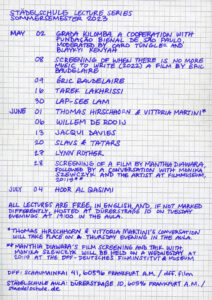 STÄDELSCHULE LECTURE SERIES
SOMMERSEMESTER 2023
MAY 02 GRADA KILOMBA, A COOPERATION WITH
FUNDAÇÃO BIENAL DE SÃO PAULO,
MODERATED BY CARO TÖNGLES AND
KENYAH
08 SCREENING OF WHEN THERE IS NO MORE
MUSIC TO WRITE (2022) A FILM BY ERIC
BAUDELAIRE
09 ÉRIC BAUDELAIRE
16 TAREK LAKHRISSI
30 LAP-SEE LAM
JUNE 01 THOMAS HIRSCHHORN & VITTORIA MARTINI*
06 WILLEM DE ROOIJ
13 JACQUI DAVIES
20 SLAVS & TATARS
27 LYNN ROTHER
28 SCREENING OF A FILM BY MANTHIA DIAWARA,
FOLLOWED BY A CONVERSATION WITH MONIKA
SZEWCZYK AND THE ARTIST AT FILMMUSEUM,
20:15**
JULY 04 HOOR AL QASIMI
ALL LECTURES ARE FREE, IN ENGLISH AND, IF NOT MARKED
DIFFERENTLY, HOSTED AT DÜRERSTRAßE 10 ON TUESDAY
EVENINGS AT 19:00 IN THE AULA.
*THOMAS HIRSCHHORN & VITTORIA MARTINI'S CONVERSATION
WILL TAKE PLACE ON A THURSDAY EVENING IN THE AULA.
**MANTHIA DIAWARA'S FILM SCREENING AND TALK WITH
MONIKA SZEWCZYK WILL BE HELD ON A WEDNESDAY AT
20:15 AT THE DFF - DEUTSCHES FILMINSTITUT & MUSEUM.
DFF: SCHAUMAINKAI 41, 60596 FRANKFURT A.M. / dff.film
STÄDELSCHULE AULA: DÜRERSTRAßE 10, 60596 FRANKFURT A.M. /
staedelschule.de